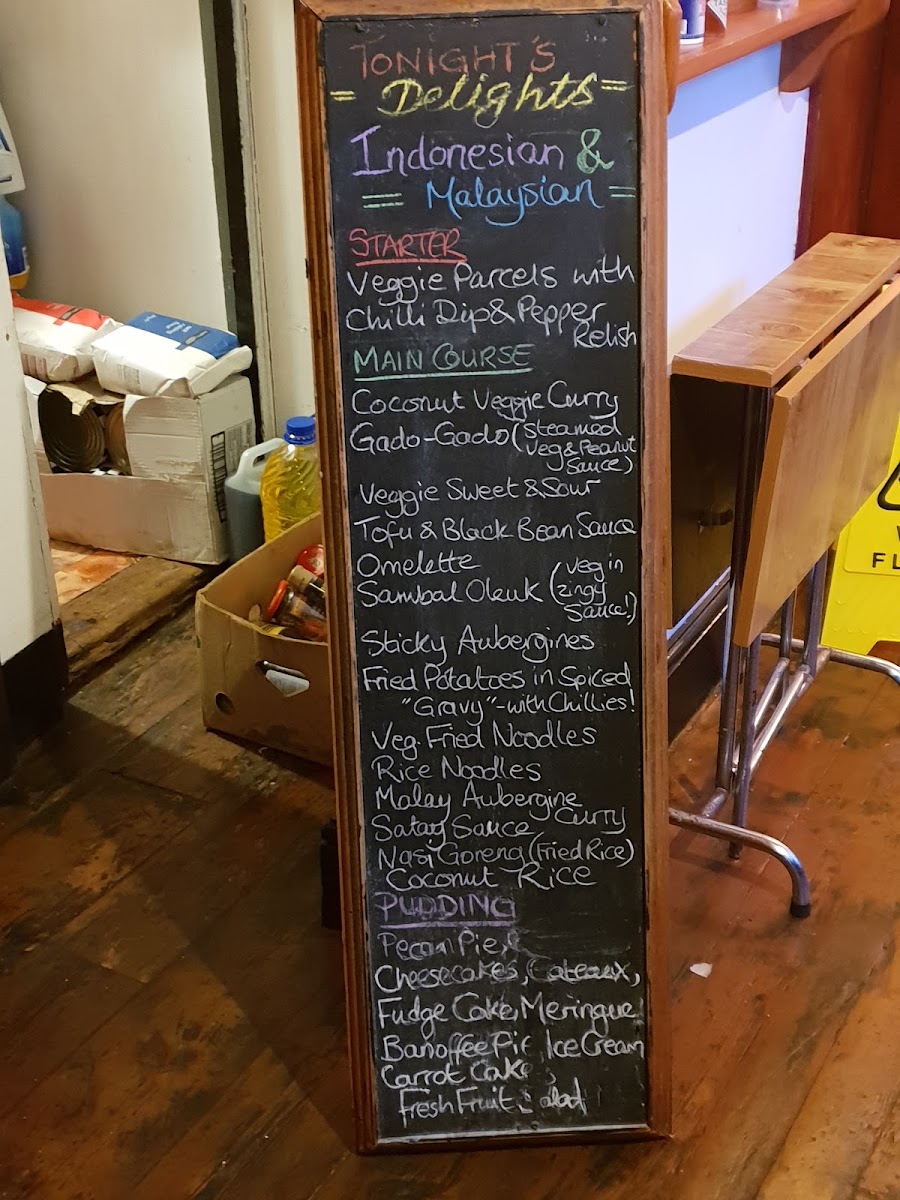 TONIGHT'S
= Delights =
Indonesian &
= Malaysian =
STARTER
Veggie Parcels with
Chilli Dip & Pepper
Relish
MAIN COURSE
Coconut Veggie Curry
Gado-Gado (Steamed
Veg & Peanut
Sauce)
Veggie Sweet & Sour
Tofu & Black Bean Sauce
Omelette
Sambal Oleuk (veg in
zingy
Sauce!)
Sticky Aubergines
Fried Potatoes in Spiced
"Gravy" - with Chillies!
Veg. Fried Noodles
Rice Noodles
Malay Aubergine
Curry
Satay Sauce
Nasi Goreng (Fried Rice)
Coconut Rice
PUDDING
Pecan Pie,
Cheesecakes, Gateaux,
Fudge Cake, Meringue
Banoffee Pie Ice Cream
Carrot Cake,
Fresh Fruit Salad
FL